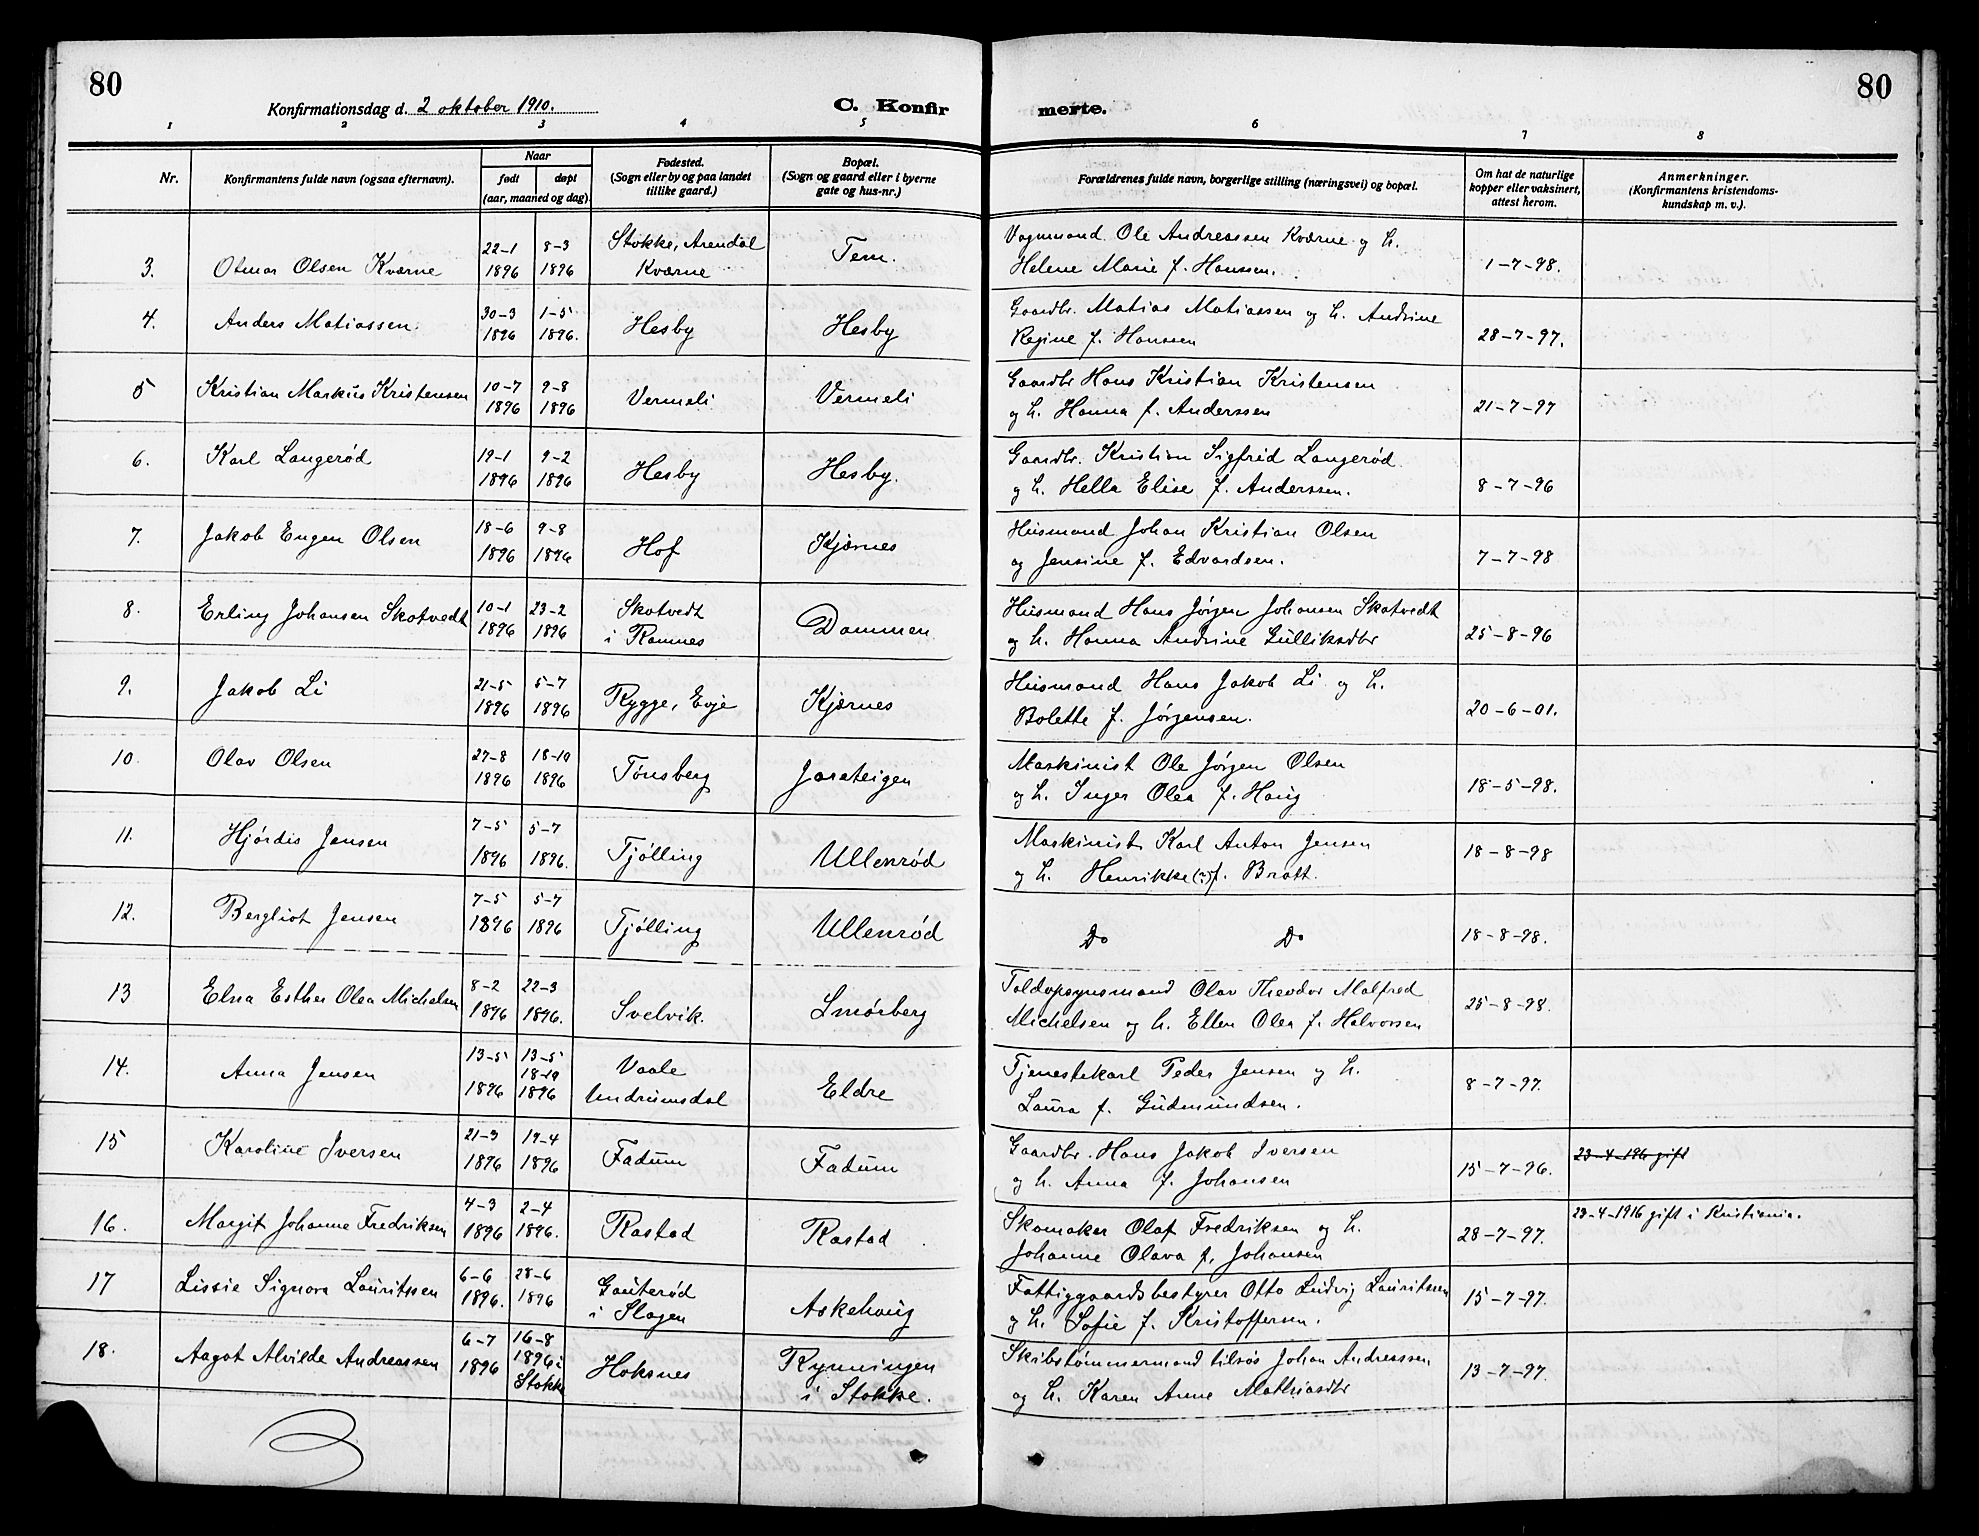 80
80
Konfirmationsdag d. 2 oktober 1910.
C. Konfir
merte.
1 2 3 4 5 6 7 8
Nr.
Konfirmantens fulde navn (ogsaa efternavn).
Naar
født
døpt
(aar, maaned og dag)
Fødested.
(Sogn eller by og paa landet
tillike gaard.)
Bopæl.
(Sogn og gaard eller i byerne
gate og hus-nr.)
Forældrenes fulde navn, borgerlige stilling (næringsvei) og bopæl.
Om hat de naturlige
kopper eller vaksinert,
attest herom.
Anmerkninger.
(Konfirmantens kristendoms-
kundskap m. v.).
22-1 8-3 Stokke, Arendal Vognmand Ole Andreassen Kværne og h.
3. Otmar Olsen Kværne 1896 1896 Kværne Tem. Helene Marie f. Hanssen. 1-7-98.
30-3 1-5 Gaardbr. Matias Matiassen og h. Andrine
4. Anders Matiassen. 1896 1896. Hesby Hesby Regine f. Hanssen 28-7-97.
10-7 9-8 Gaardbr Hans Kristian Kristensen
5 Kristian Markus Kristensen 1896 1896 Vermeli Vermeli og h. Hanna f. Anderssen 21-7-97
19-1 9-2 Gaardbr. Kristian Sigfred Langerød
6. Karl Langerød 1896 1896 Hesby Hesby. og h. Hella Elise f. Anderssen. 8-7-96
18-6 9-8 Husmand Johan Kristian Olsen
7. Jakob Eugen Olsen 1896 1896 Hof Kjærnes og Jensine f. Edvardsen. 7-7-98
10-1 23-2 Skotvedt Husmand Hans Jørgen Johansen Skotvedt
8. Erling Johansen Skotvedt 1896 1896 i Ramnes Dammen og h. Hanna Andrine Gulliksdtr 25-8-96
21-5 5-7 Husmand Hans Jakob Li og h.
9. Jakob Li 1896 1896 Rygge, Evje Kjærnes Bolette f. Jørgensen. 20-6-01.
27-8 18-10 Maskinist Ole Jørgen Olsen
10. Olav Olsen 1896 1896 Tønsberg Jarateigen og h. Inger Olea f. Haug 18-5-98.
7-5 5-7 Maskinist Karl Anton Jensen
11. Hjørdis Jensen 1896 1896. Tjølling Ullenrød og h. Henrikke (?) f. Bratt. 18-8-98
7-5 5-7
12. Bergliot Jensen 1896 1896 Tjølling Ullenrød Do Do 18-8-98.
8-2 22-3 Toldopsynsmand Olav Theodor Malfred
13 Elna Esther Olea Michelsen 1896 1896. Svelvik. Smørberg Michelsen og h. Ellen Olea f. Halvorsen 25-8-98.
13-5 13-5 Vaale Tjenestekarl Peder Jensen og h.
18-10
14. Anna Jensen 1896 1896 Undrumsdal Eldre Laura f. Gudmundsen. 8-7-97.
21-3 19-4 Gaardbr. Hans Jakob Iversen 23-4-196 gift
15 Karoline Iversen 1896 1896 Fadum Fadum og h. Anna f. Johansen 15-7-96.
4-3 2-4 Skomaker Olaf Fredriksen og h. 23-4-1916 gift i Kristiania.
16. Margit Johanne Fredriksen 1896 1896. Rastad Rastad Johanne Olava f. Johansen 28-7-97.
6-6 28-6 Gauterød Fattiggaardsbestyrer Otto Ludvig Lauritssen
17 Lissie Signora Lauritssen 1896. 1896 i Slagen Askehaug og h. Sofie f. Kristoffersen. 15-7-97.
6-7 16-8 Rynningen Skibstømmermand tilsøs Johan Andreassen
18. Aagot Alvilde Andreassen 1896 1896 i Høksnes i Stokke. og h. Karen Anne Mathiasdtr 13-7-97.
Stokke